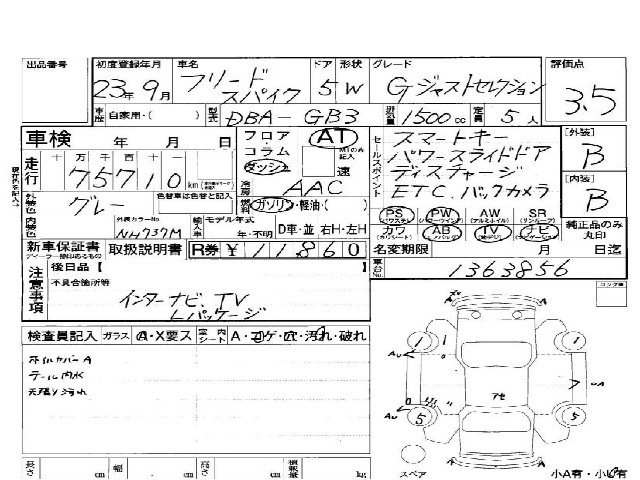 出品番号 初度登録年月 車名 ドア 形状 グレード 評価点
23年9月 フリード スパイク 5 W Gジャストセレクション 3.5
車歴 自家用・( ) 型式 DBA-GB3 排気量 1500cc 定員 5人
車検 年 月 日
フロア・コラム ダッシュ AT 速
走行 十 万 千 百 十 一
75710 km
冷房 AAC
外装色 グレー 色替車は色替と記入
燃料 ガソリン・軽油・( )
内装色 外装カラーNo NH737M
輸入車 モデル年式 年・不明 D車・並 右H・左H
セールスポイント
スマートキー
パワースライドドア
ディスチャージ
ETC.バックカメラ
[外装] B
[内装] B
PS PW AW SR
カワ AB TV ナビ
純正品のみ丸印
新車保証書 取扱説明書 R券 ¥11860
名変期限 月 日迄
注意事項 後日品【 】
車台No 1363856
不具合箇所等
インターナビ.TV
Lパッケージ
検査員記入 ガラス A・X要ス 室内シート A・コゲ・穴・汚れ・破れ
ホイルカバーA
テール内水
天張り汚れ
長さ cm 幅 cm 高さ cm 積載量 kg
スペア
小A有・小U有